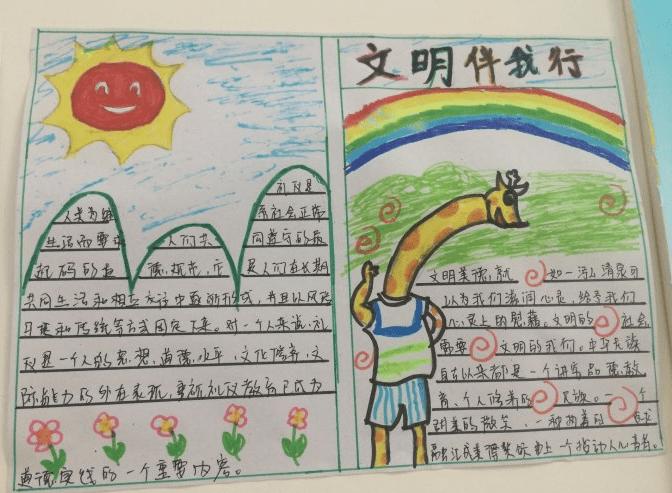 文明伴我行
礼仪是
人类为维
系社会正常
生活而要求
人们共
同遵守的最
起码的道
德规范,它
是人们在长期
共同生活和相互交往中逐渐形成,并且以风俗
习惯和传统等方式固定下来。对一个人来说,礼
仪是一个人的思想,道德水平,文化修养,交
际能力的外在表现,重视礼仪教育已成为
道德实践的一个重要内容。
文明美德,就 如一泓清泉可
以为我们滋润心灵,给予我们
心灵上的慰藉。文明的 社会
需要 文明的我们。中华民族
自古以来都是一个讲究品德教
育、个人修养的 民族。一个
甜美的微笑、一
融